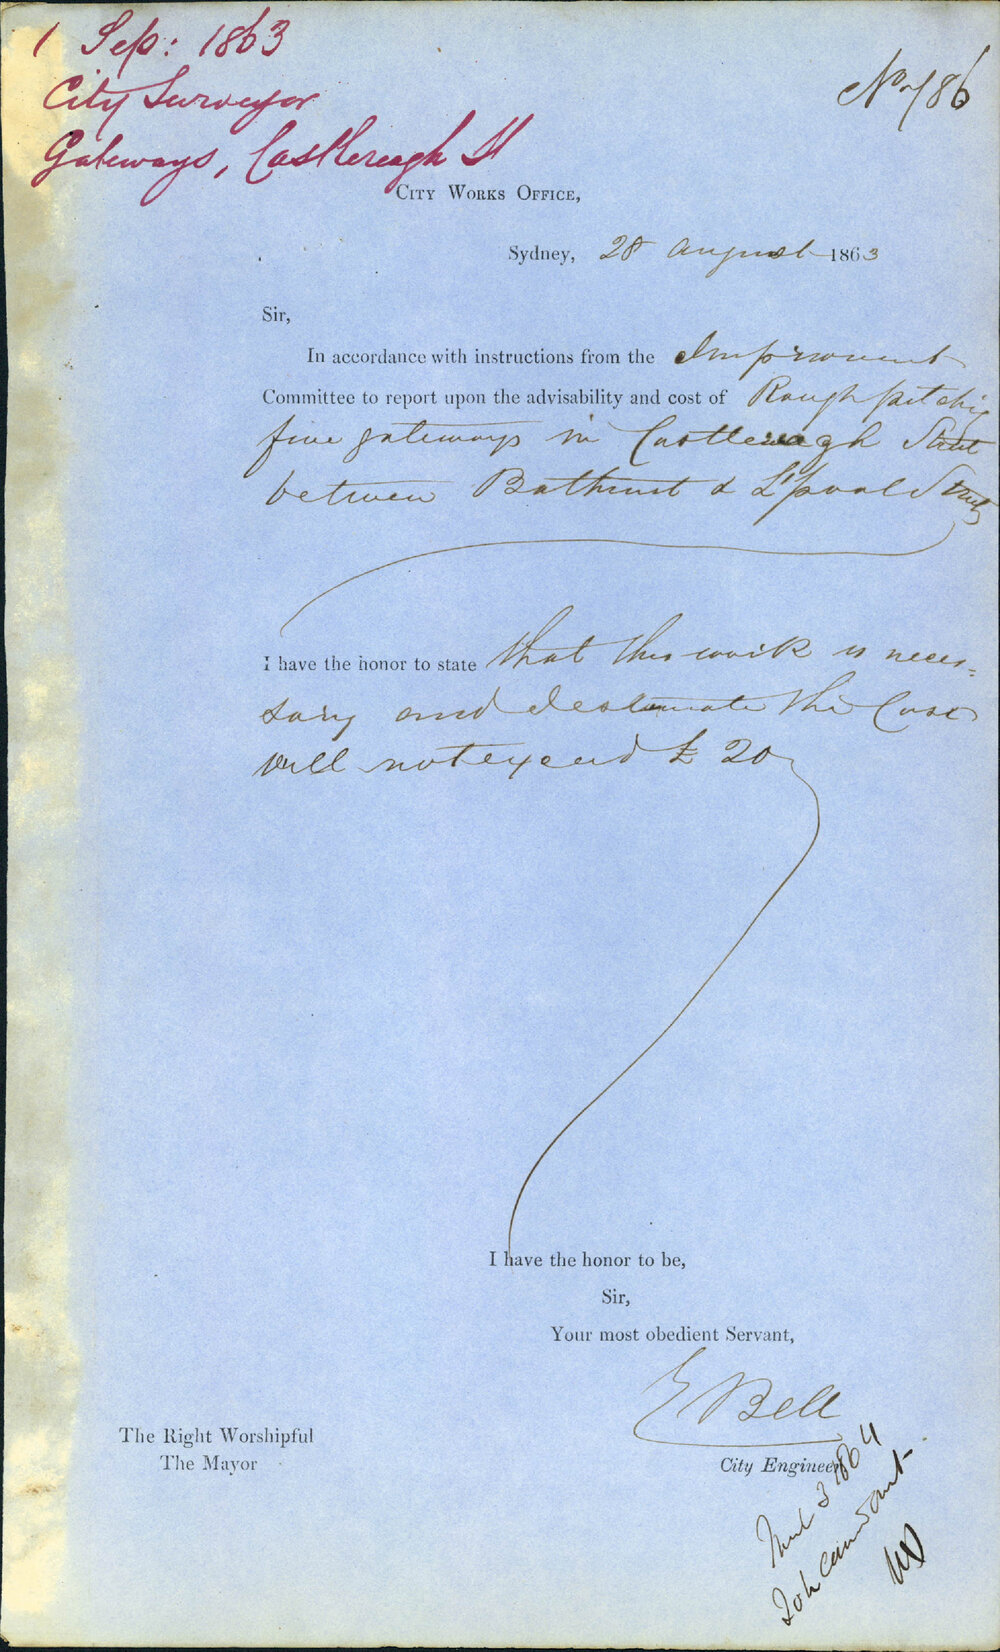 1 Sep: 1863
City Surveyor
Gateways, Castlereagh St
No. 786
City Works Office,
Sydney, 28 August 1863
Sir,
In accordance with instructions from the Improvement
Committee to report upon the advisability and cost of Rough pitching
five gateways in Castlereagh Street
between Bathurst & L'pool Streets
I have the honor to state that this work is neces=
sary and I estimate the Cost
will not exceed £20
I have the honor to be,
Sir,
Your most obedient Servant,
E Bell
City Engineer
The Right Worshipful
The Mayor
3 1864